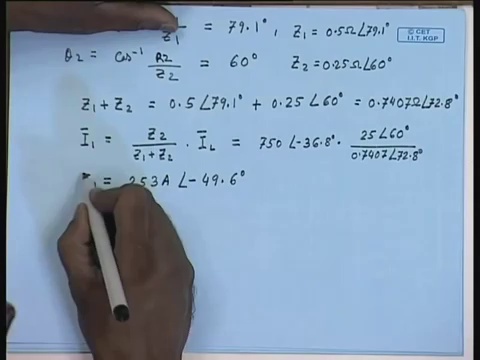 Z₁ = 79.1°, Z₁ = 0.5Ω∠79.1°
© CET
I.I.T. KGP
θ₂ = Cos⁻¹ R₂/Z₂ = 60° Z₂ = 0.25Ω∠60°
Z₁ + Z₂ = 0.5∠79.1° + 0.25∠60° = 0.7407Ω∠72.8°
Ī₁ = Z₂/(Z₁+Z₂) · Ī_L = 750∠-36.8° · 25∠60°/0.7407∠72.8°
₁ = 253A ∠-49.6°